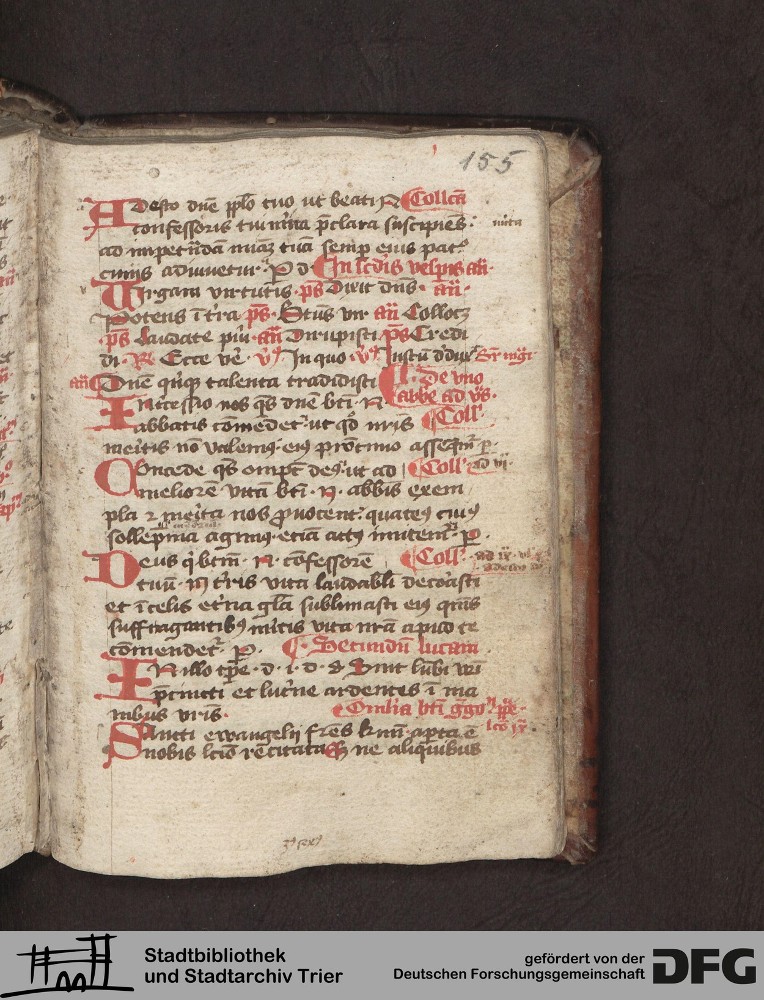 155
Adesto dne pplo tuo ut beati N Collcta
confessoris tui mita pclara suscipiens
mita
ad impetrdam miaz tua semp eius pat
cinijs adiuuetur P d In scdis vespis an
Virgam virtutis ps Dixit dns an
Potens i tra ps Btus vir an Collocz
ps Laudate piu an Dirupisti ps Credi
di R Ecce ve v In quo v Justu d dux
an Dne qnq talenta tradidisti Coll De vno
abbe ad vs
Intcessio nos qs dne bti N
abbatis comedet ut qd nris Coll
meitis no valemq eiq proctinio asseqmr p
Concede qs ompt deq ut ad Coll ad
meliore vita bti N abbis exem
pla 2 meita nos prouocent quateq cuiq
sollepnia agimq etia actq imitemr P
Deus q btm N cofessore Coll ad ix
tuu in tris vita laudabli decorasti
et i celis etna gla sublimasti eiq qms
suffragantibq mitis vita nra apud te
comendet P Secundu lucam
In illo tpe d i d s Sint lubi vri
pcincti et lucne ardentes i ma
nibus vris Omlia bti ggoij ppe
lco ix
Sancti ewangelij fres kmi apta e
nobis lcio recitata Sz ne aliquibus
Stadtbibliothek
und Stadtarchiv Trier
gefördert von der
Deutschen Forschungsgemeinschaft
DFG